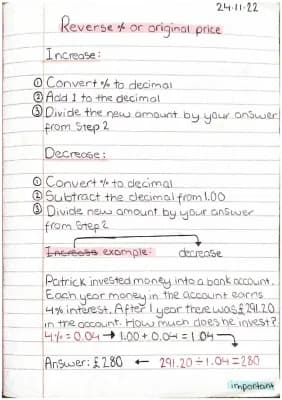 24.11.22
Reverse % or original price
Increase:
① Convert % to decimal
② Add 1 to the decimal
③ Divide the new amount by your answer
from Step 2
Decrease:
① Convert % to decimal
② Subtract the decimal from 1.00
③ Divide new amount by your answer
from Step 2
Increase example: decrease
Patrick invested money into a bank account.
Each year money in the account earns
4% interest. After 1 year there was £291.20
in the account. How much does he invest?
4% = 0.04 → 1.00 + 0.04 = 1.04
Answer: £280 ← 291.20 ÷ 1.04 = 280
important